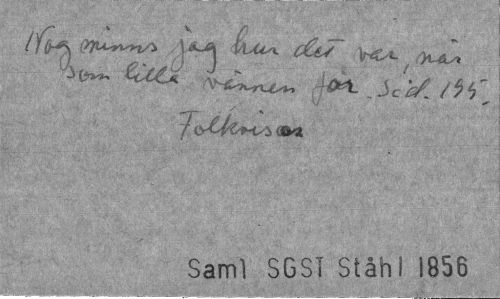 Nog minns jag hur det var, när
som lilla vännen for. Sid. 195.
Folkvisor
Saml SGST Ståhl 1856